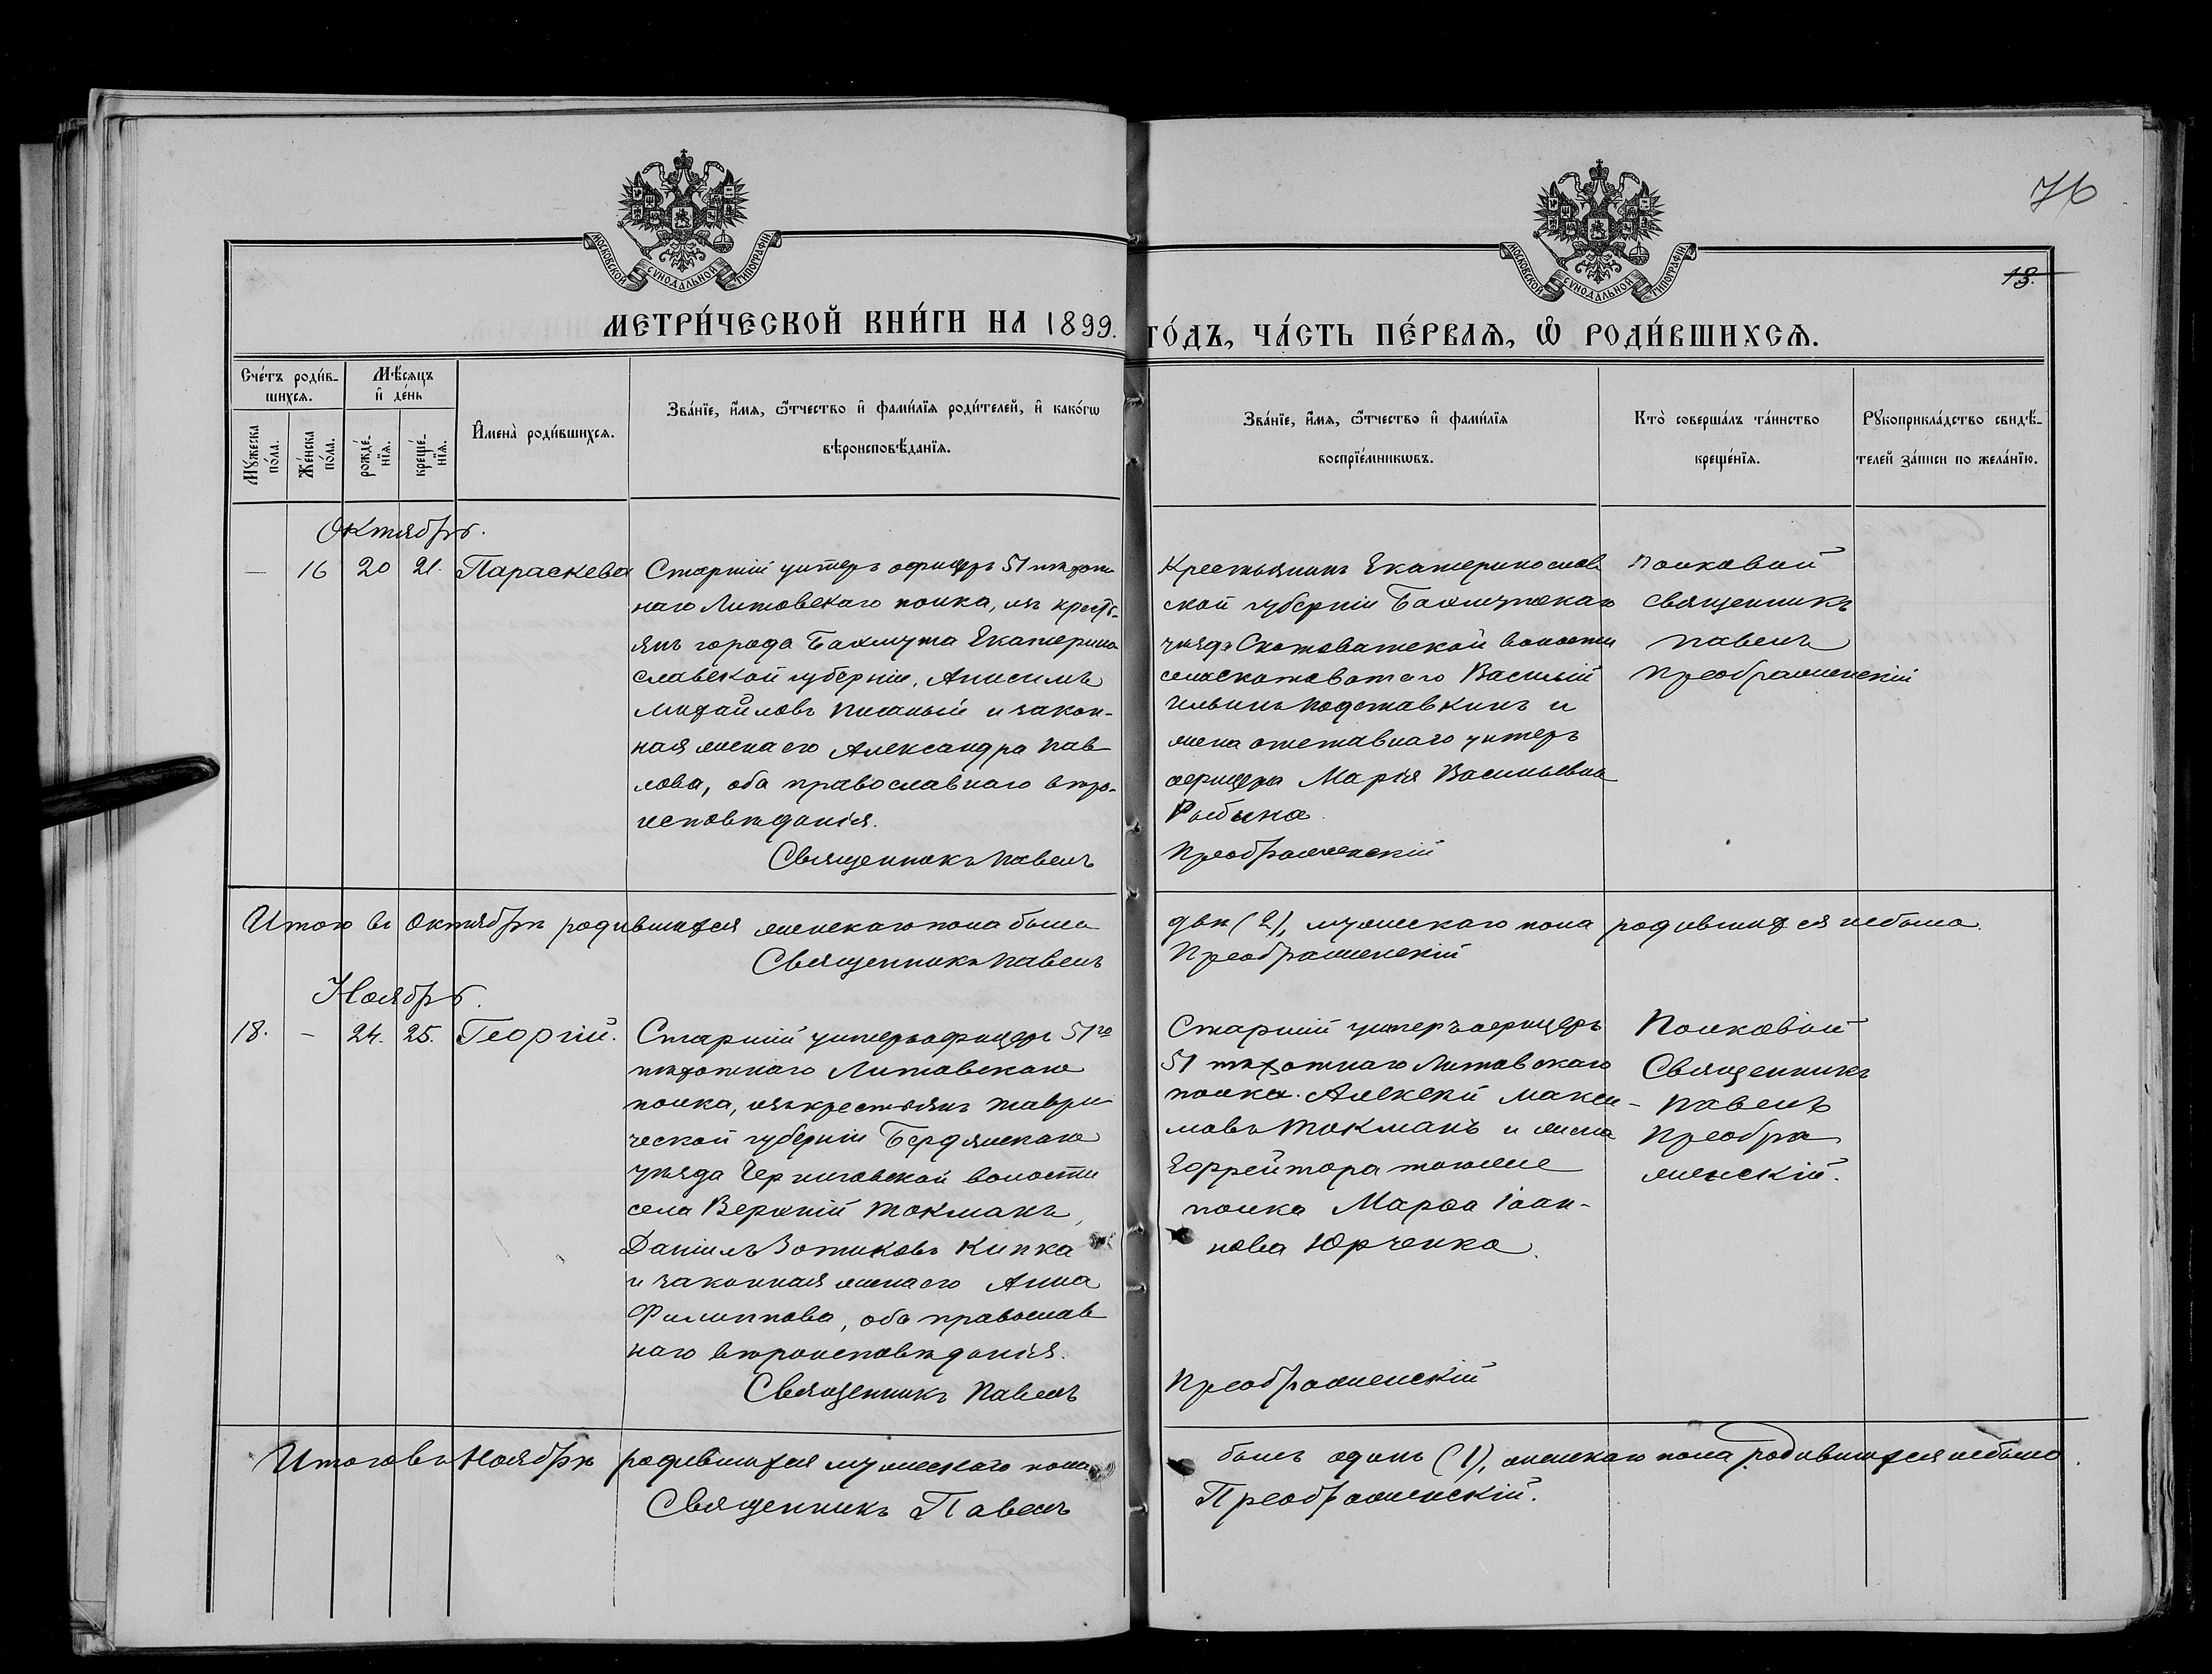 76
13.
МОСКОВСКОЙ СѴНОДАЛЬНОЙ ТИПОГРАФІИ
МОСКОВСКОЙ СѴНОДАЛЬНОЙ ТИПОГРАФІИ
МЕТРИ́ЧЕСКОЙ КНИ́ГИ НА 1899. ГО́ДЪ, ЧА́СТЬ ПЕ́РВАѦ, Ѽ РОДИ́ВШИХСѦ.
Сче́тъ роди́в-
шихсѧ.
Мѣ́сѧцъ
и҆ де́нь
Мꙋ́жеска
по́ла.
Же́нска
по́ла.
рожде́-
нїѧ.
креще́-
нїѧ.
И҆мена̀ роди́вшихсѧ.
Зва́нїе, и҆́мѧ, ѻ҆́тчество и҆ фами́лїѧ роди́телей, и҆ како́гѡ
вѣроисповѣ́данїѧ.
Зва́нїе, и҆́мѧ, ѻ҆́тчество и҆ фами́лїѧ
воспрїе́мникѡвъ.
Кто̀ соверша́лъ та́инство
креще́нїѧ.
Рꙋкоприкла́дство свидѣ́-
телей за́писи по жела́нїю.
Октябрь.
— 16 20 21. Параскева
Старшій унтеръ офицеръ 51 пѣхот
наго Литовскаго полка, изъ кресть-
янъ города Бахмута Екатерино
славской губерніи, Анисимъ
Михайловъ Писаный и закон-
ная жена его Александра Пав
лова, оба православнаго вѣро-
исповѣданія.
Священникъ Павелъ
Крестьянинъ Екатеринослав
ской губерніи Бахмутскаго
уѣзда Скотоватской волости
села Скотоватаго Василій
Ильинъ Подставкинъ и
жена отставнаго унтеръ
офицера Марія Васильевна
Рыбина.
Преображенскій
Полковой
священникъ
Павелъ
Преображенскій
Итого въ Октябрѣ родившихся женскаго пола было
Священникъ Павелъ
двѣ (2), мужескаго пола родившихся небыло.
Преображенскій
Ноябрь.
18. – 24. 25. Георгій.
Старшій унтеръ офицеръ 51го
пѣхотнаго Литовскаго
полка, изъ крестьянъ Таври
ческой губерніи Бердянскаго
уѣзда Черниговской волости
села Верхній Токмакъ,
Даніилъ Зотиковъ Кипка
и законная жена его Анна
Филиппова, оба православ
наго вѣроисповѣданія.
Священникъ Павелъ
Старшій унтеръ офицеръ
51 пѣхотнаго Литовскаго
полка Алексѣй Макси-
мовъ Токманъ и жена
Ефрейтора тогоже
полка Марѳа Іоан-
нова Юрченко.
Преображенскій
Полковой
Священникъ
Павелъ
Преобра
женскій.
Итого въ Ноябрѣ родившихся мужескаго пола
Священникъ Павелъ
былъ одинъ (1), женскаго пола родившихся небыло.
Преображенскій.